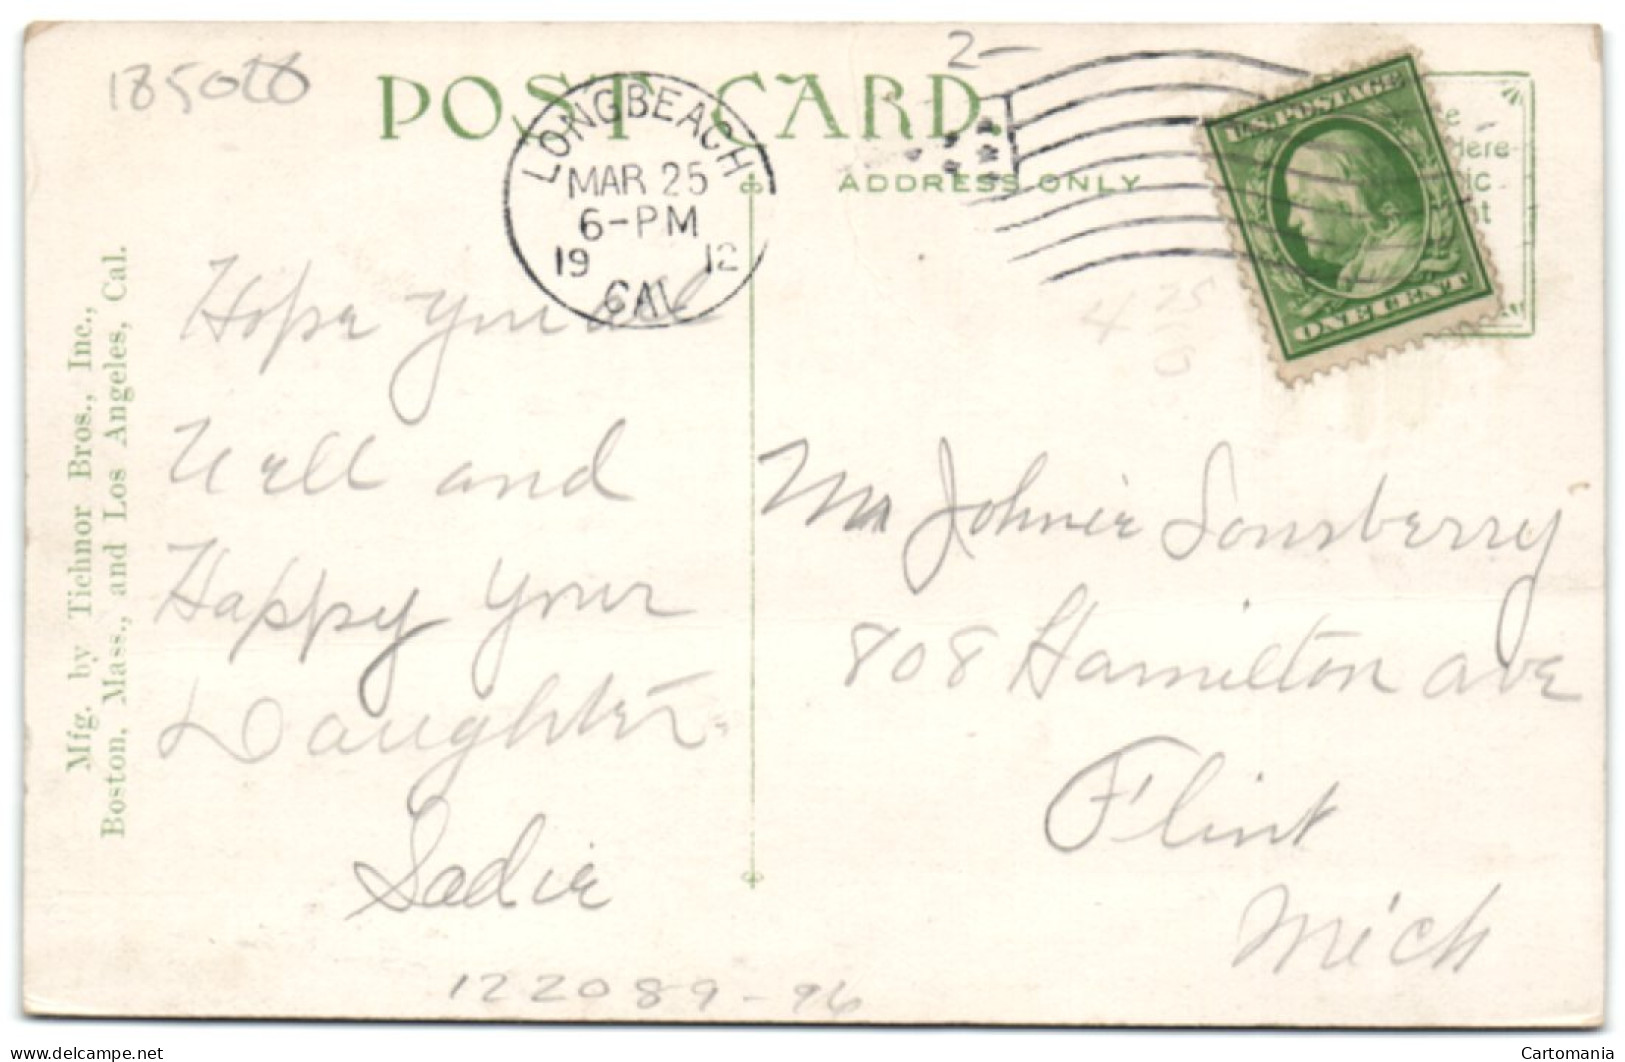 185028
POST CARD
2-
LONG BEACH
MAR 25
6-PM
19 12
CAL
ADDRESS ONLY
U.S. POSTAGE
ONE CENT
Mfg. by Tichnor Bros., Inc.,
Boston, Mass., and Los Angeles, Cal.
Hope you all
Well and
Happy your
Daughter
Sadie
4 25
0
Mr Johnie Sonsberry
808 Hamilton ave
Flint
Mich
122089-96
delcampe.net
Cartomania